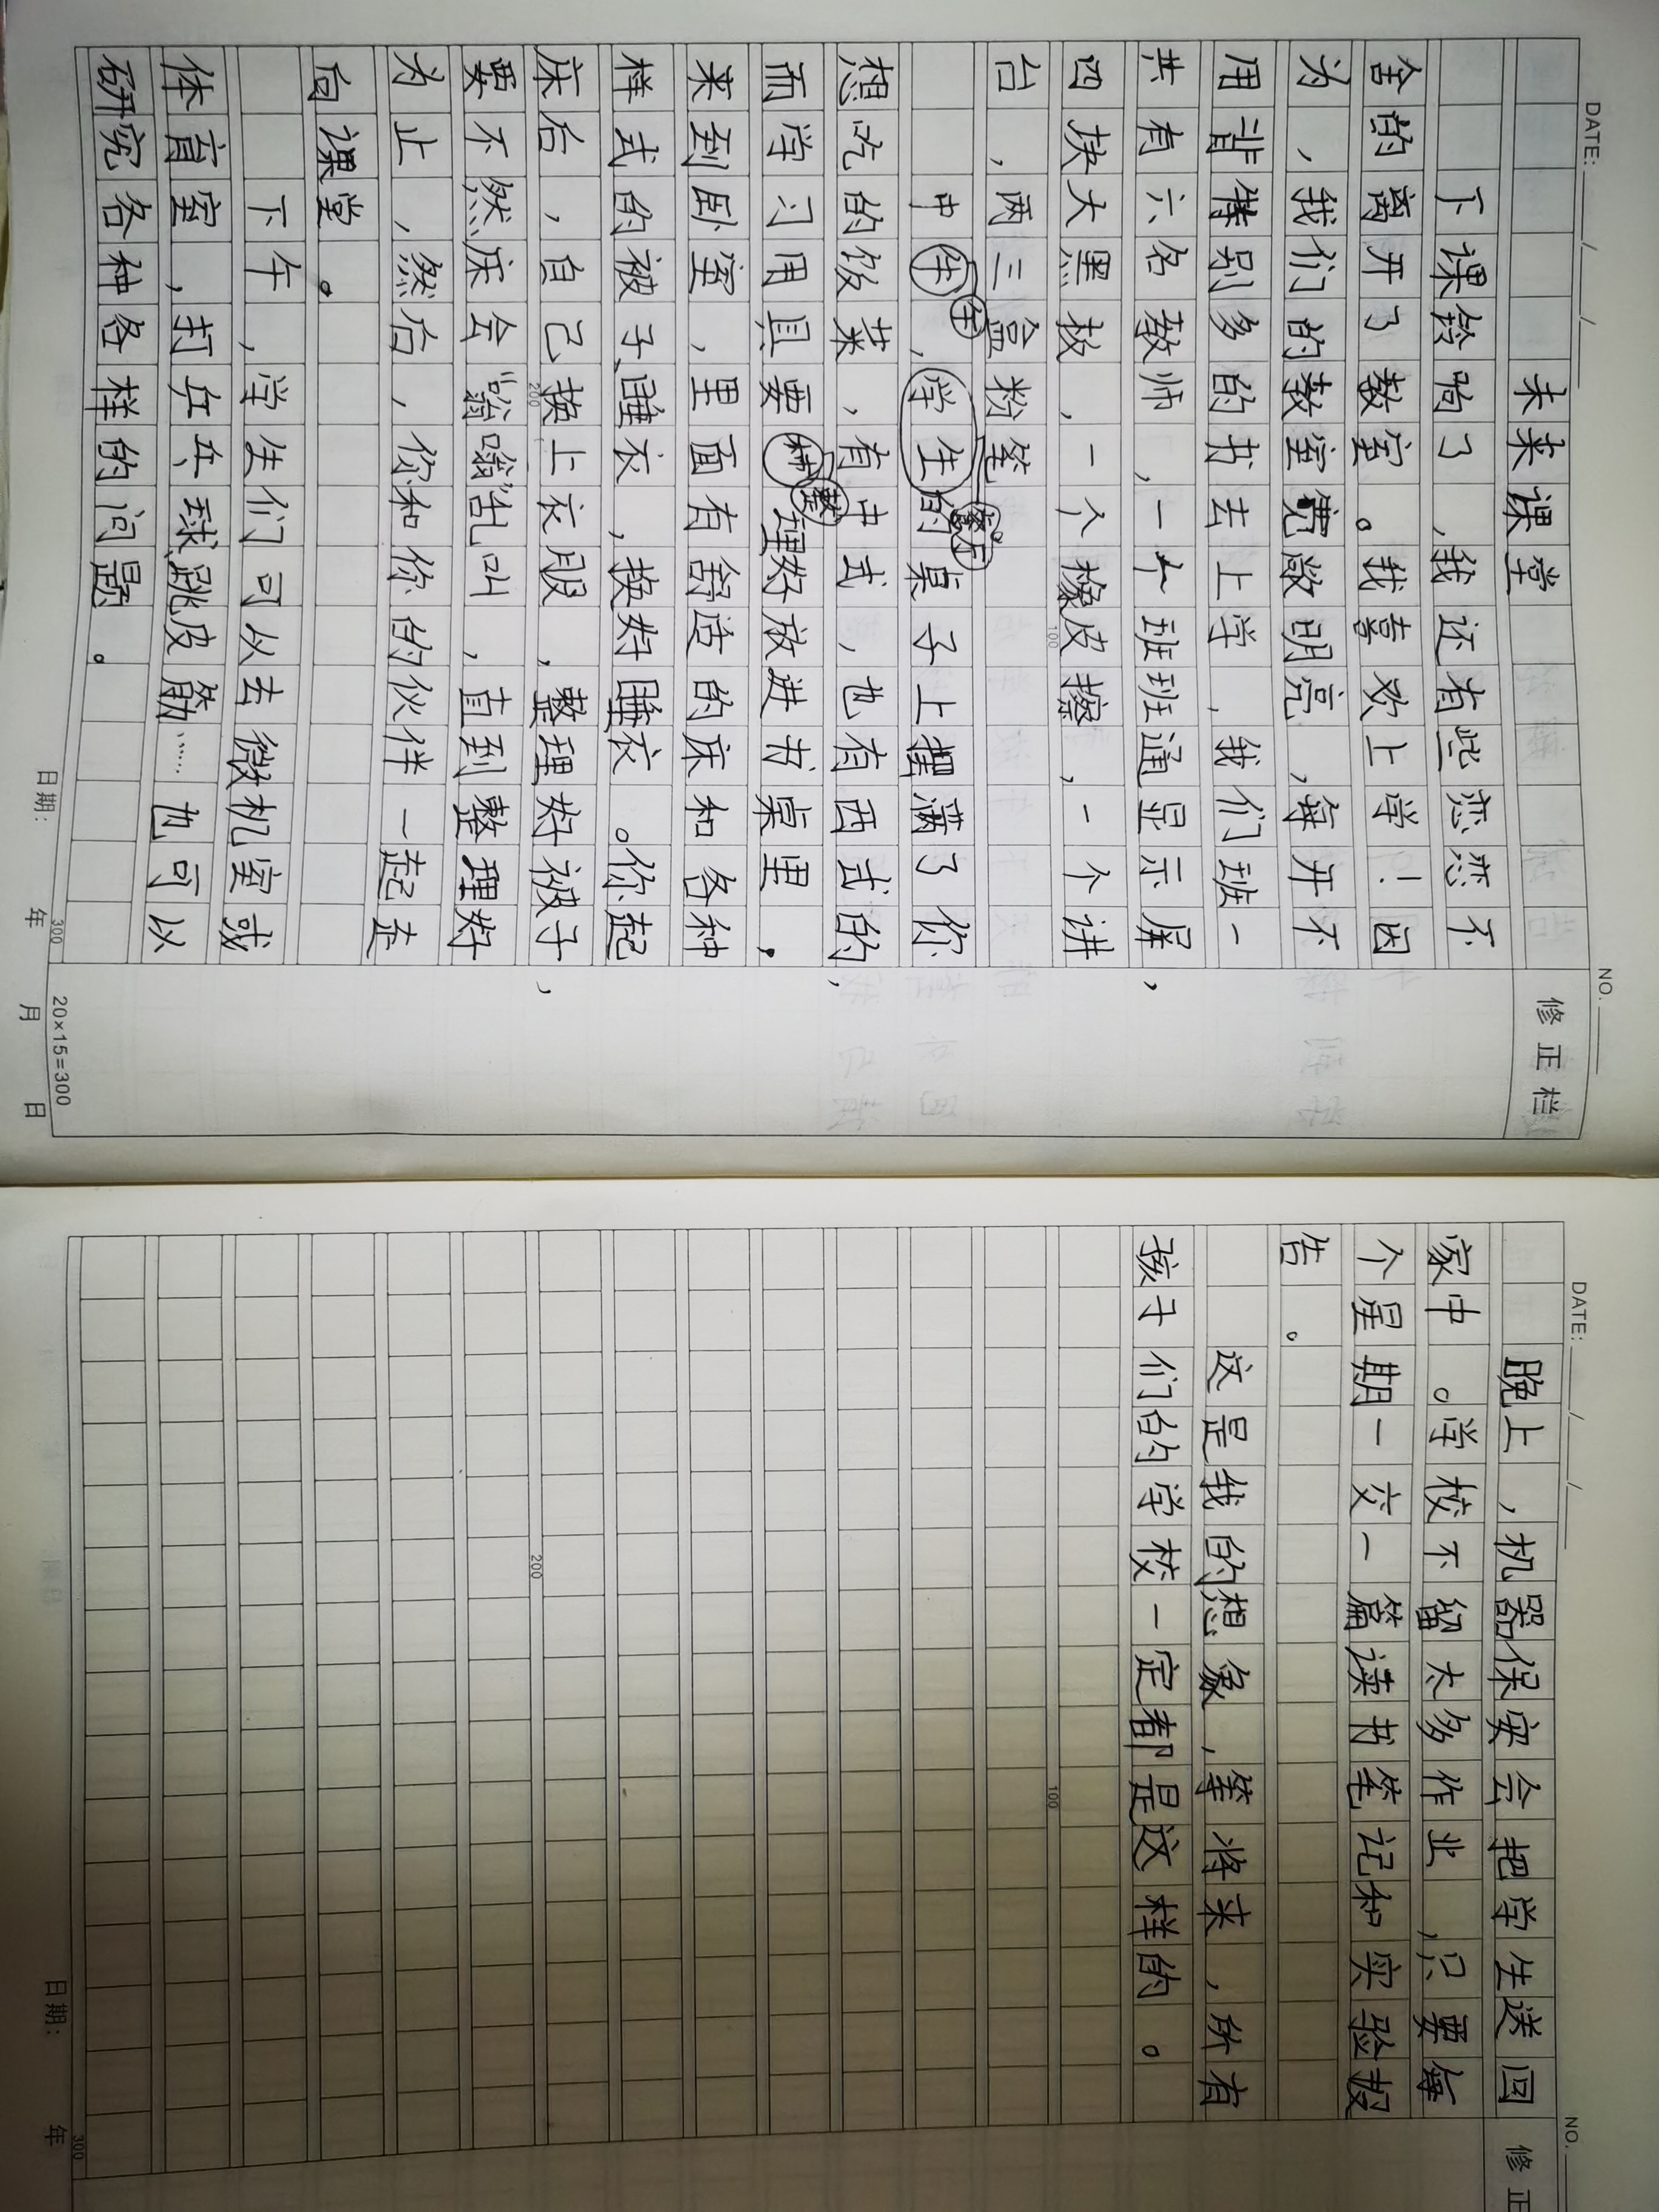 DATE: / / NO.
未来课堂 修正栏
下课铃响了，我还有些恋恋不
舍的离开了教室。我喜欢上学！因
为，我们的教室宽敞明亮，每开不
用背特别多的书去上学，我们班一
共有六名教师，一个班班通显示屏，
四块大黑板，一个橡皮擦，一个讲
台，两三盒粉笔
中午，餐厅的桌子上摆满了你
想吃的饭菜，有中式，也有西式的，
而学习用具要整理好放进书桌里，
来到卧室，里面有舒适的床和各种
样式的被子、睡衣，换好睡衣。你起
床后，自己换上衣服，整理好被子，
要不然床会“嗡嗡”乱叫，直到整理好
为止，然后，你和你的伙伴一起走
向课堂。
下午，学生们可以去微机室或
体育室，打乒乓球、跳皮筋……也可以
研究各种各样的问题。
100
200
300
20×15=300
日期： 年 月 日
DATE: / / NO.
修正
晚上，机器保安会把学生送回
家中。学校不留太多作业，只要每
个星期一交一篇读书笔记和实验报
告。
这是我的想象，等将来，所有
孩子们的学校一定都是这样的。
100
200
300
日期： 年